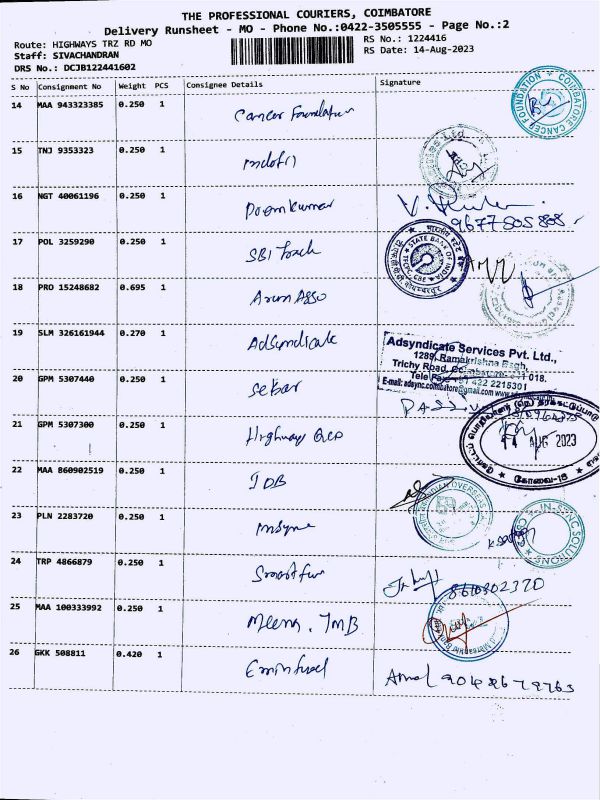 THE PROFESSIONAL COURIERS, COIMBATORE
Delivery Runsheet - MO - Phone No.:0422-3505555 - Page No.:2
Route: HIGHWAYS TRZ RD MO
RS No.: 1224416
Staff: SIVACHANDRAN
RS Date: 14-Aug-2023
DRS No.: DCJB122441602
S No Consignment No Weight PCS Consignee Details Signature
14 MAA 943323385 0.250 1 Cancer Foundation
COIMBATORE CANCER FOUNDATION
15 TNJ 9353323 0.250 1
16 NGT 40061196 0.250 1 Poornkumar
9677505808
17 POL 3259290 0.250 1 SBI Track
STATE BANK OF INDIA
18 PRO 15248682 0.695 1 Arun Asso
19 SLM 326161944 0.270 1 Adsyndicate
Adsyndicate Services Pvt. Ltd.,
1289, Ramakrishna Bagh,
Trichy Road, 018.
Tele 422 2215301
E-mail: adsync.coimbatore@gmail.com
20 GPM 5307440 0.250 1 Sekar
21 GPM 5307300 0.250 1 Highways
14 AUG 2023
கோவை-18
22 MAA 860902519 0.250 1 IOB
INDIAN OVERSEAS
23 PLN 2283720 0.250 1 Insync
IN-SYNC SOLUTIONS
24 TRP 4866879 0.250 1
25 MAA 100333992 0.250 1 Meena, TMB
26 GKK 508811 0.420 1